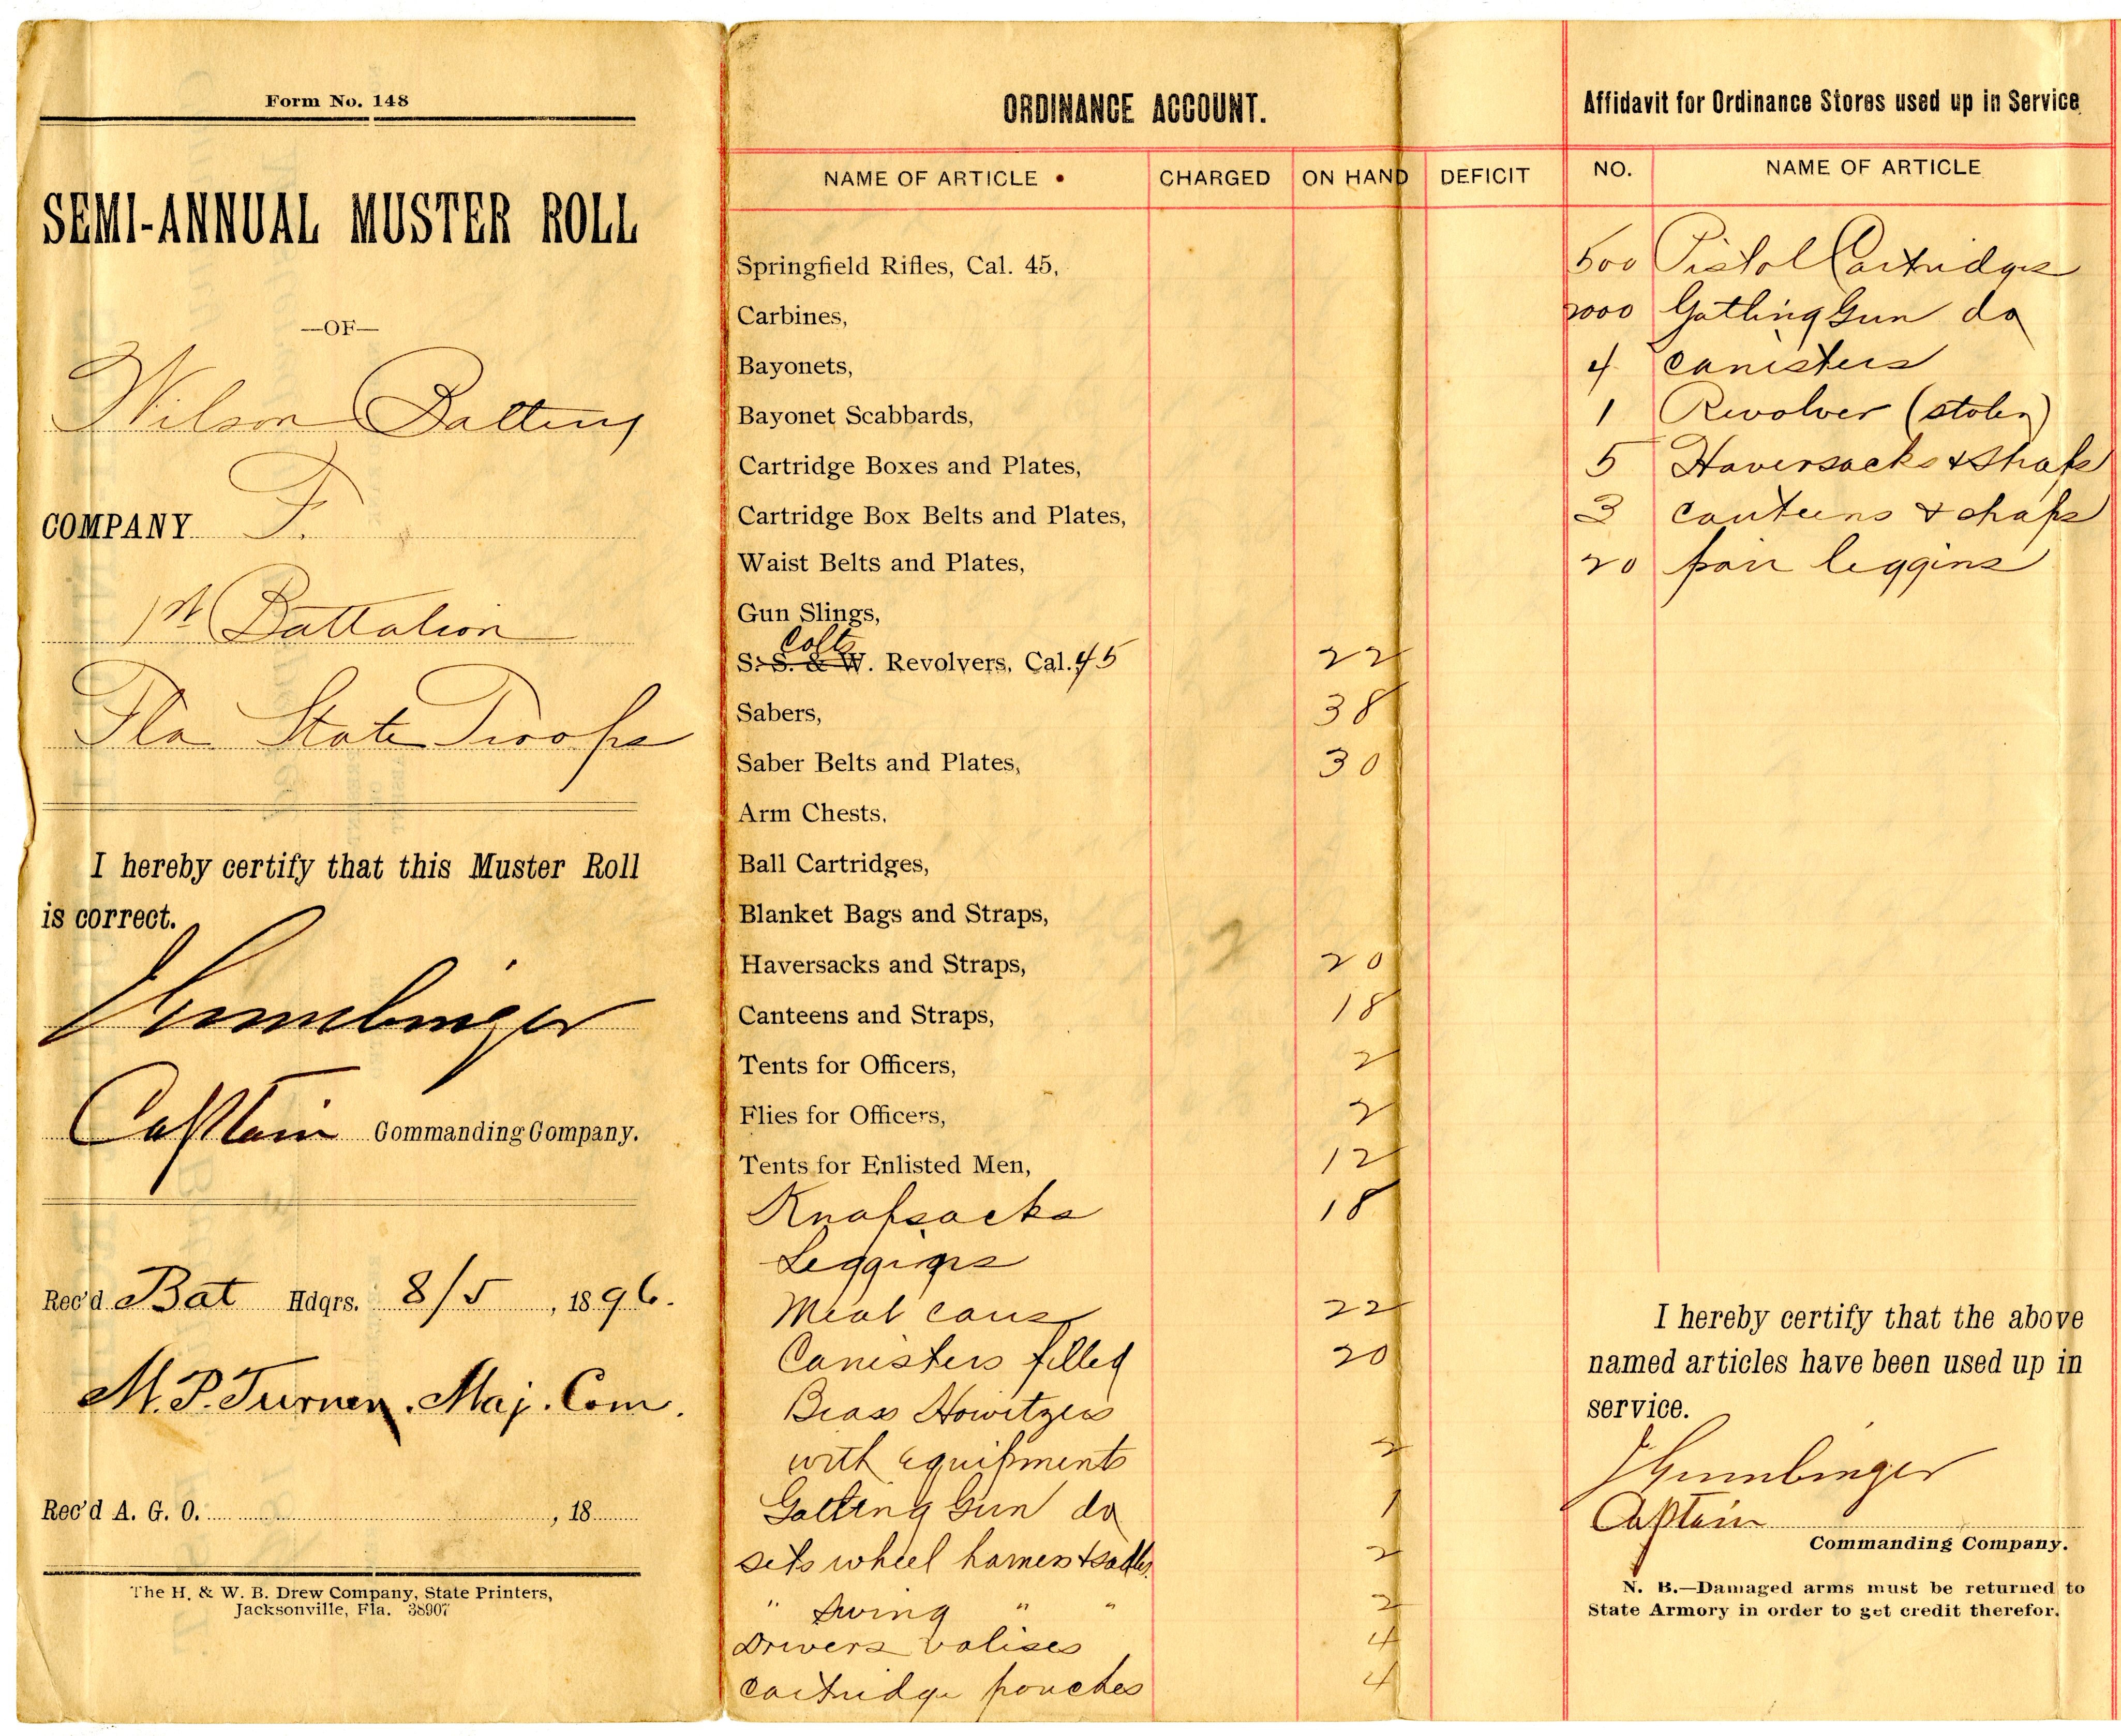 Form No. 148
SEMI-ANNUAL MUSTER ROLL
—OF—
Wilson Battery
COMPANY F.
1st Battalion
Fla State Troops
I hereby certify that this Muster Roll
is correct.
Captain Commanding Company.
Rec'd Bat Hdqrs. 8/5, 1896.
M. P. Turner. Maj. Com.
Rec'd A. G. O. , 18
The H. & W. B. Drew Company, State Printers,
Jacksonville, Fla. 38907
ORDINANCE ACCOUNT.
NAME OF ARTICLE CHARGED ON HAND DEFICIT
Springfield Rifles, Cal. 45,
Carbines,
Bayonets,
Bayonet Scabbards,
Cartridge Boxes and Plates,
Cartridge Box Belts and Plates,
Waist Belts and Plates,
Gun Slings,
Colts
S. S. & W. Revolvers, Cal. 45 22
Sabers, 38
Saber Belts and Plates, 30
Arm Chests,
Ball Cartridges,
Blanket Bags and Straps,
Haversacks and Straps, 2 20
Canteens and Straps, 18
Tents for Officers, 2
Flies for Officers, 2
Tents for Enlisted Men, 12
Knapsacks 18
Leggings
Meat cans 22
Canisters filled 20
Brass Howitzers
with equipments 2
Gatling Gun do 1
sets wheel harness & sadles 2
" swing " " 2
Drivers valises 4
cartridge pouches 4
Affidavit for Ordinance Stores used up in Service
NO. NAME OF ARTICLE
500 Pistol Cartridges
2000 Gatling Gun do
4 canisters
1 Revolver (stolen)
5 Haversacks & straps
3 canteens & straps
20 pair leggins
I hereby certify that the above
named articles have been used up in
service.
Captain
Commanding Company.
N. B.—Damaged arms must be returned to
State Armory in order to get credit therefor.